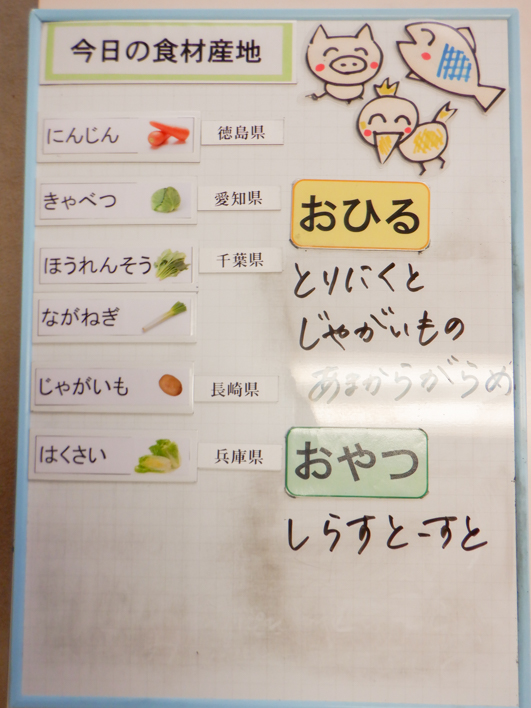 今日の食材産地
にんじん 徳島県
きゃべつ 愛知県
ほうれんそう 千葉県
ながねぎ
じゃがいも 長崎県
はくさい 兵庫県
おひる
とりにくと
じゃがいもの
あまからがらめ
おやつ
しらすとーすと